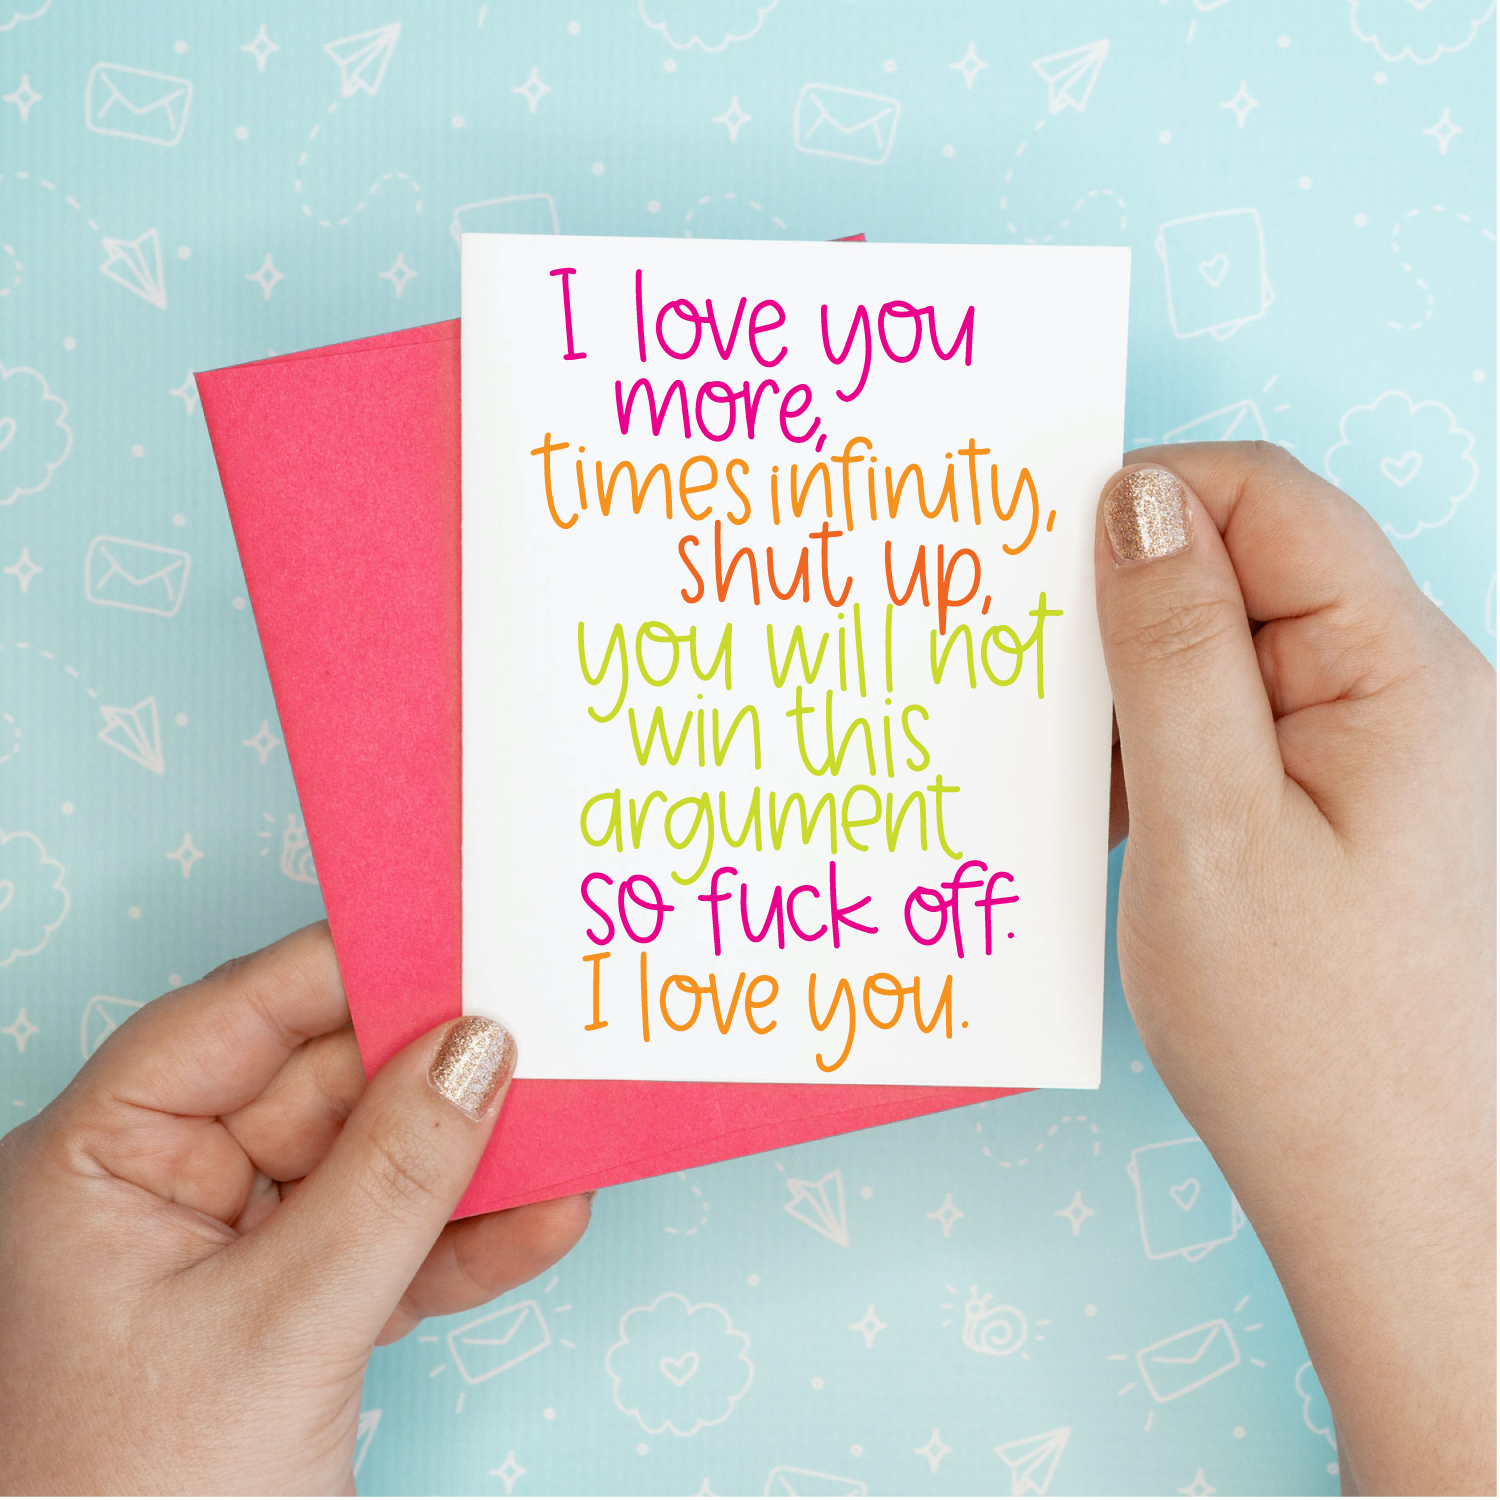 I love you
more,
times infinity,
shut up,
you will not
win this
argument
so fuck off.
I love you.